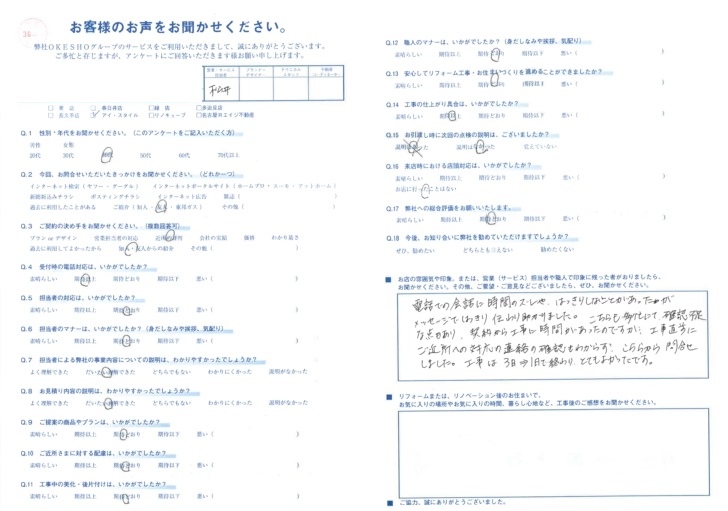 お客様のお声をお聞かせください。
弊社OKESHOグループのサービスをご利用いただきまして、誠にありがとうございます。
ご多忙と存じますが、アンケートにご回答いただきます様お願い申し上げます。
松井
□本店 □春日井店 □緑店 □多治見店
□長久手店 □アイ・スタイル □リノキューブ □名古屋ホエイジ不動産
Q.1 性別・年代をお聞かせください。(このアンケートをご記入いただく方)
男性 女性
20代 30代 40代 50代 60代 70代以上
Q.2 今回、お問合せいただいたきっかけをお聞かせください。(どれか一つ)
インターネット検索(ヤフー・グーグル) インターネットポータルサイト(ホームプロ・スーモ・アットホーム)
新聞折込みチラシ ポスティングチラシ インターネット広告 雑誌( )
過去に利用したことがある ご紹介(知人・友人・東邦ガス) その他( )
Q.3 ご契約の決め手をお聞かせください。(複数回答可)
プランorデザイン 営業担当者の対応 近所の評判 会社の実績 価格 わかり易さ
過去に利用してよかったから 知人・友人からの紹介 その他( )
Q.4 受付時の電話対応は、いかがでしたか?
素晴らしい 期待以上 期待どおり 期待以下 悪い( )
Q.5 担当者の対応は、いかがでしたか?
素晴らしい 期待以上 期待どおり 期待以下 悪い( )
Q.6 担当者のマナーは、いかがでしたか?(身だしなみや挨拶、気配り)
素晴らしい 期待以上 期待どおり 期待以下 悪い( )
Q.7 担当者による弊社の事業内容についての説明は、わかりやすかったでしょうか?
よく理解できた だいたい理解できた どちらでもない わかりにくかった 説明がなかった
Q.8 お見積り内容の説明は、わかりやすかったでしょうか?
よく理解できた だいたい理解できた どちらでもない わかりにくかった 説明がなかった
Q.9 ご提案の商品やプランは、いかがでしたか?
素晴らしい 期待以上 期待どおり 期待以下 悪い( )
Q.10 ご近所さまに対する配慮は、いかがでしたか?
素晴らしい 期待以上 期待どおり 期待以下 悪い( )
Q.11 工事中の美化・後片付けは、いかがでしたか?
素晴らしい 期待以上 期待どおり 期待以下 悪い( )
Q.12 職人のマナーは、いかがでしたか?(身だしなみや挨拶、気配り)
素晴らしい 期待以上 期待どおり 期待以下 悪い( )
Q.13 安心してリフォーム工事・お住まいづくりを進めることができましたか?
素晴らしい 期待以上 期待どおり 期待以下 悪い( )
Q.14 工事の仕上がり具合は、いかがでしたか?
素晴らしい 期待以上 期待どおり 期待以下 悪い( )
Q.15 お引渡し時に次回の点検の説明は、ございましたか?
説明はあった 説明はなかった 覚えていない
Q.16 来店時における店頭対応は、いかがでしたか?
素晴らしい 期待以上 期待どおり 期待以下 悪い( )
お店に行ったことはない
Q.17 弊社への総合評価をお願いいたします。
素晴らしい 期待以上 期待どおり 期待以下 悪い( )
Q.18 今後、お知り合いに弊社を勧めていただけますでしょうか?
ぜひ、勧めたい どちらとも言えない 勧めたくない
■ お店の雰囲気や印象、または、営業(サービス)担当者や職人で印象に残った者がおりましたら、
お聞かせください。その他、ご要望・ご意見などございましたら、ぜひ、お聞かせください。
電話での会話に時間のズレや、はっきりしないことがあったが
メッセージではっきり 助かりました。こちらも 確認不足
な点もあり、契約から工事に時間があったのですが、工事直前に
ご近所への対応の連絡の確認もわからず、こちらから問合せ
しました。工事は3日の1日で終わり、とてもよかったです。
■ リフォームまたは、リノベーション後のお住まいで、
お気に入りの場所やお気に入りの時間、暮らし心地など、工事後のご感想をお聞かせください。
■ ご協力、誠にありがとうございました。